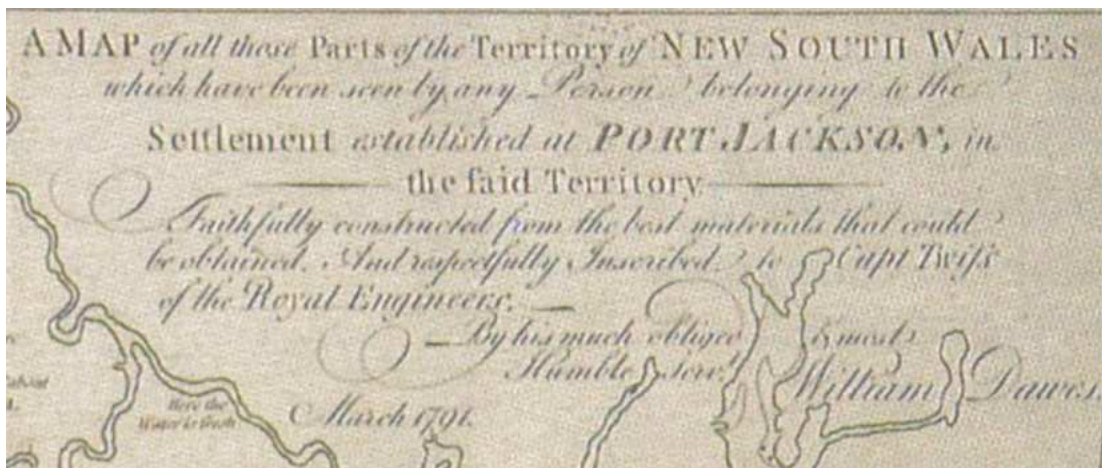 A MAP of all those Parts of the Territory of NEW SOUTH WALES
which have been seen by any Person belonging to the
Settlement established at PORT JACKSON, in
the ſaid Territory
Faithfully constructed from the best materials that could
be obtained. And respectfully Inscribed to Capt Twiſs
of the Royal Engineers.
By his much obliged & most
Humble Serv.t
William Dawes.
March 1791.
Here the
Water is fresh